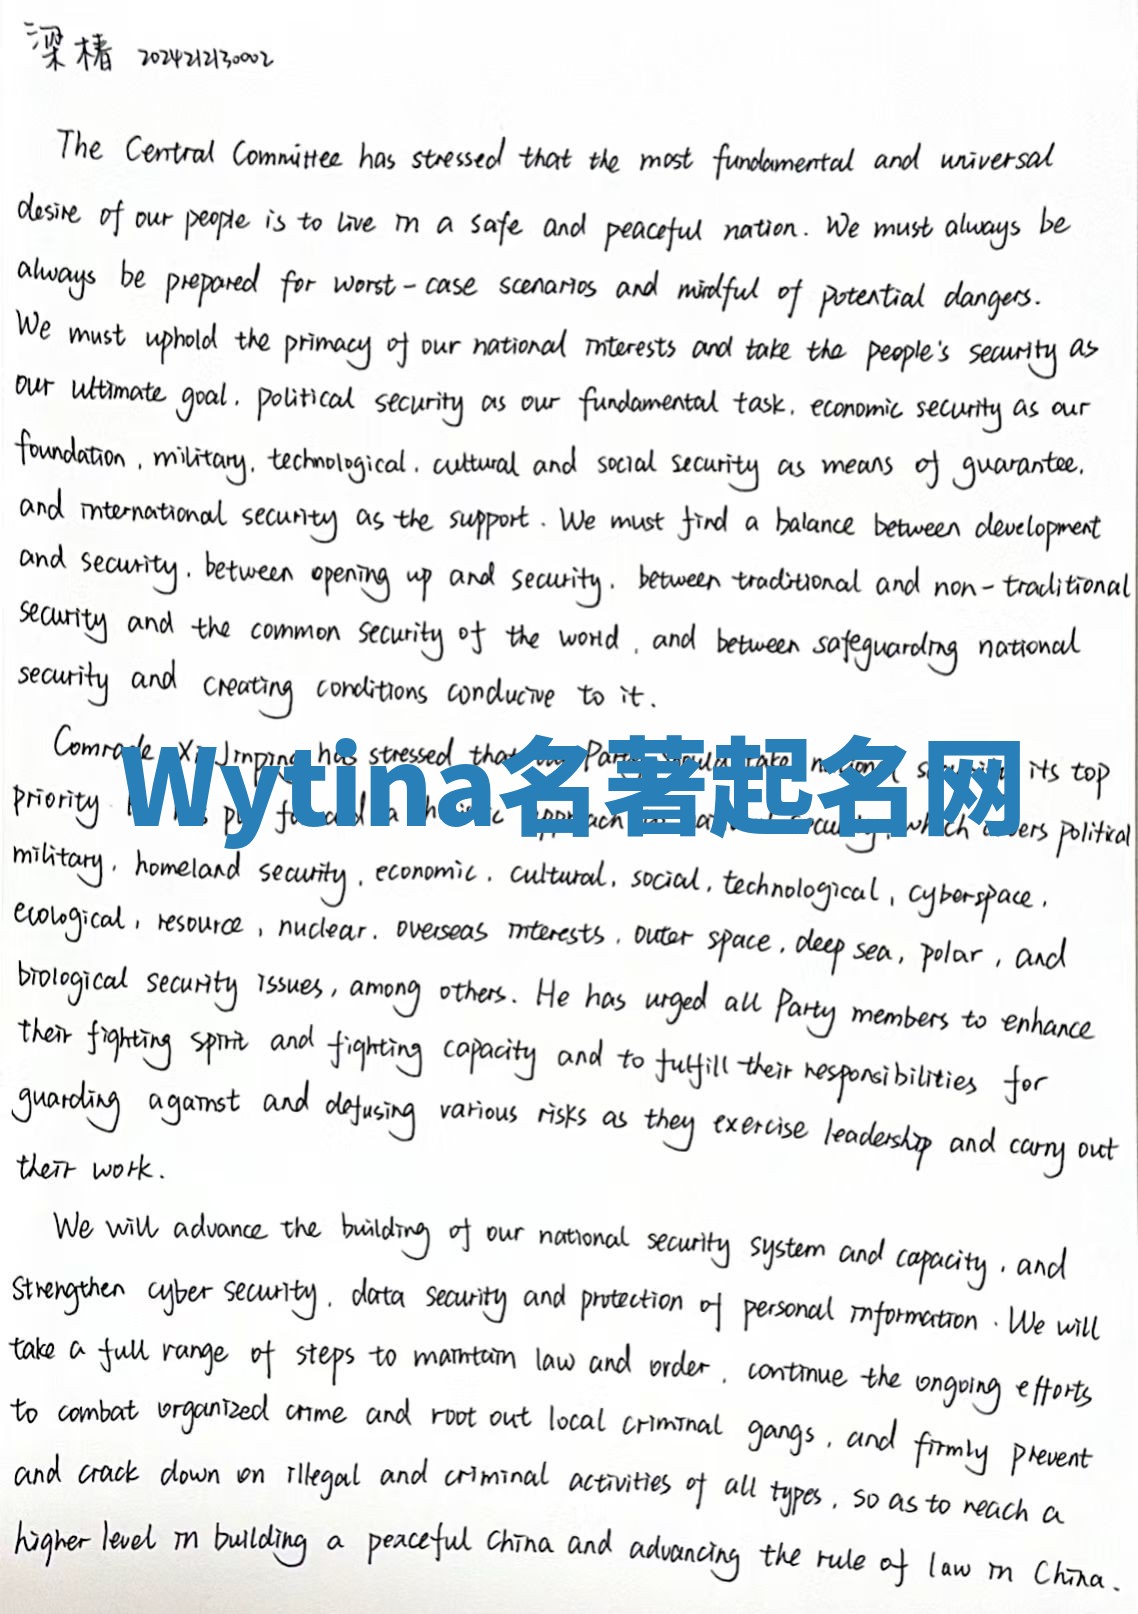 梁椿 2024212130002
The Central Committee has stressed that the most fundamental and universal
desire of our people is to live in a safe and peaceful nation. We must always be
always be prepared for worst-case scenarios and mindful of potential dangers.
We must uphold the primacy of our national interests and take the people's security as
our ultimate goal, political security as our fundamental task, economic security as our
foundation, military, technological, cultural and social security as means of guarantee,
and international security as the support. We must find a balance between development
and security, between opening up and security, between traditional and non-traditional
security and the common security of the world, and between safeguarding national
security and creating conditions conducive to it.
Comrade Xi Jinping has stressed that Party take its top
Wytina名著起名网
priority a approach security, which covers political
military, homeland security, economic, cultural, social, technological, cyberspace,
ecological, resource, nuclear, overseas interests, outer space, deep sea, polar, and
biological security issues, among others. He has urged all Party members to enhance
their fighting spirit and fighting capacity and to fulfill their responsibilities for
guarding against and defusing various risks as they exercise leadership and carry out
their work.
We will advance the building of our national security system and capacity, and
strengthen cyber security, data security and protection of personal information. We will
take a full range of steps to maintain law and order, continue the ongoing efforts
to combat organized crime and root out local criminal gangs, and firmly prevent
and crack down on illegal and criminal activities of all types, so as to reach a
higher level in building a peaceful China and advancing the rule of law in China.